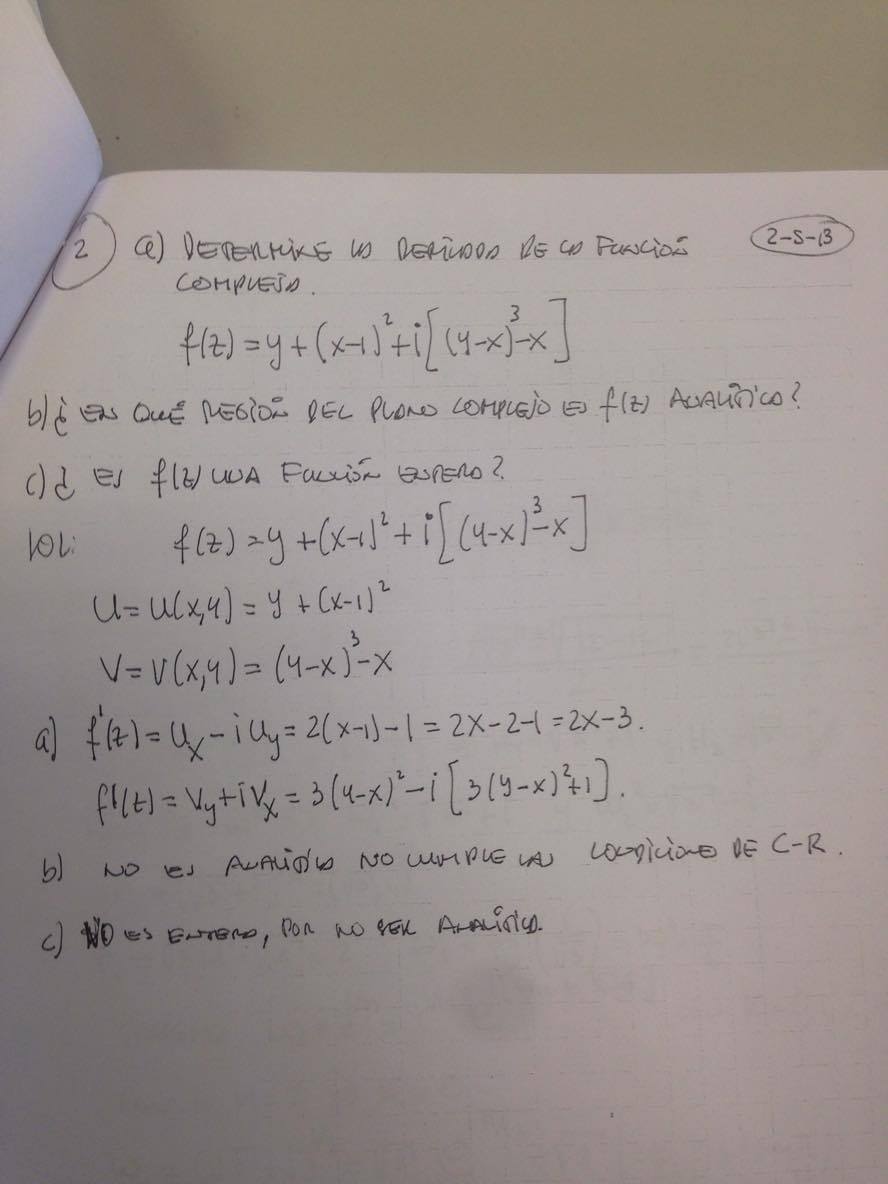 2 a) DETERMINE LA DERIVADA DE LA FUNCIÓN 2-S-13
COMPLEJA.
f(z) = y + (x-1)² + i[(y-x)³-x]
b) ¿ EN QUÉ REGIÓN DEL PLANO COMPLEJO ES f(z) ANALÍTICA?
c) ¿ ES f(z) UNA FUNCIÓN ENTERA?
SOL: f(z) = y + (x-1)² + i[(y-x)³-x]
U = U(x,y) = y + (x-1)²
V = V(x,y) = (y-x)³-x
a) f'(z) = Ux - i Uy = 2(x-1) - 1 = 2x - 2 - 1 = 2x - 3.
f'(z) = Vy + i Vx = 3(y-x)² - i[3(y-x)²+1].
b) NO ES ANALÍTICA NO CUMPLE LAS CONDICIONES DE C-R.
c) NO ES ENTERA, POR NO SER ANALÍTICA.